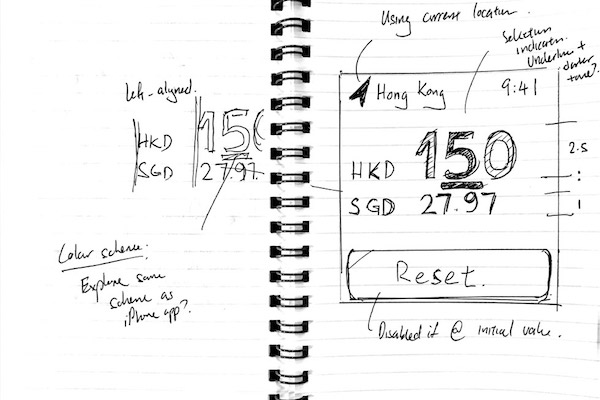 left-aligned.
HKD 150
SGD 27.97
Colour scheme.
Explore same
scheme as
iPhone app?
Using current location.
Selection
indicator.
Underline +
darker
tone?
Hong Kong 9:41
HKD 150
SGD 27.97
2.5
:
1
Reset.
Disabled if @ initial value.